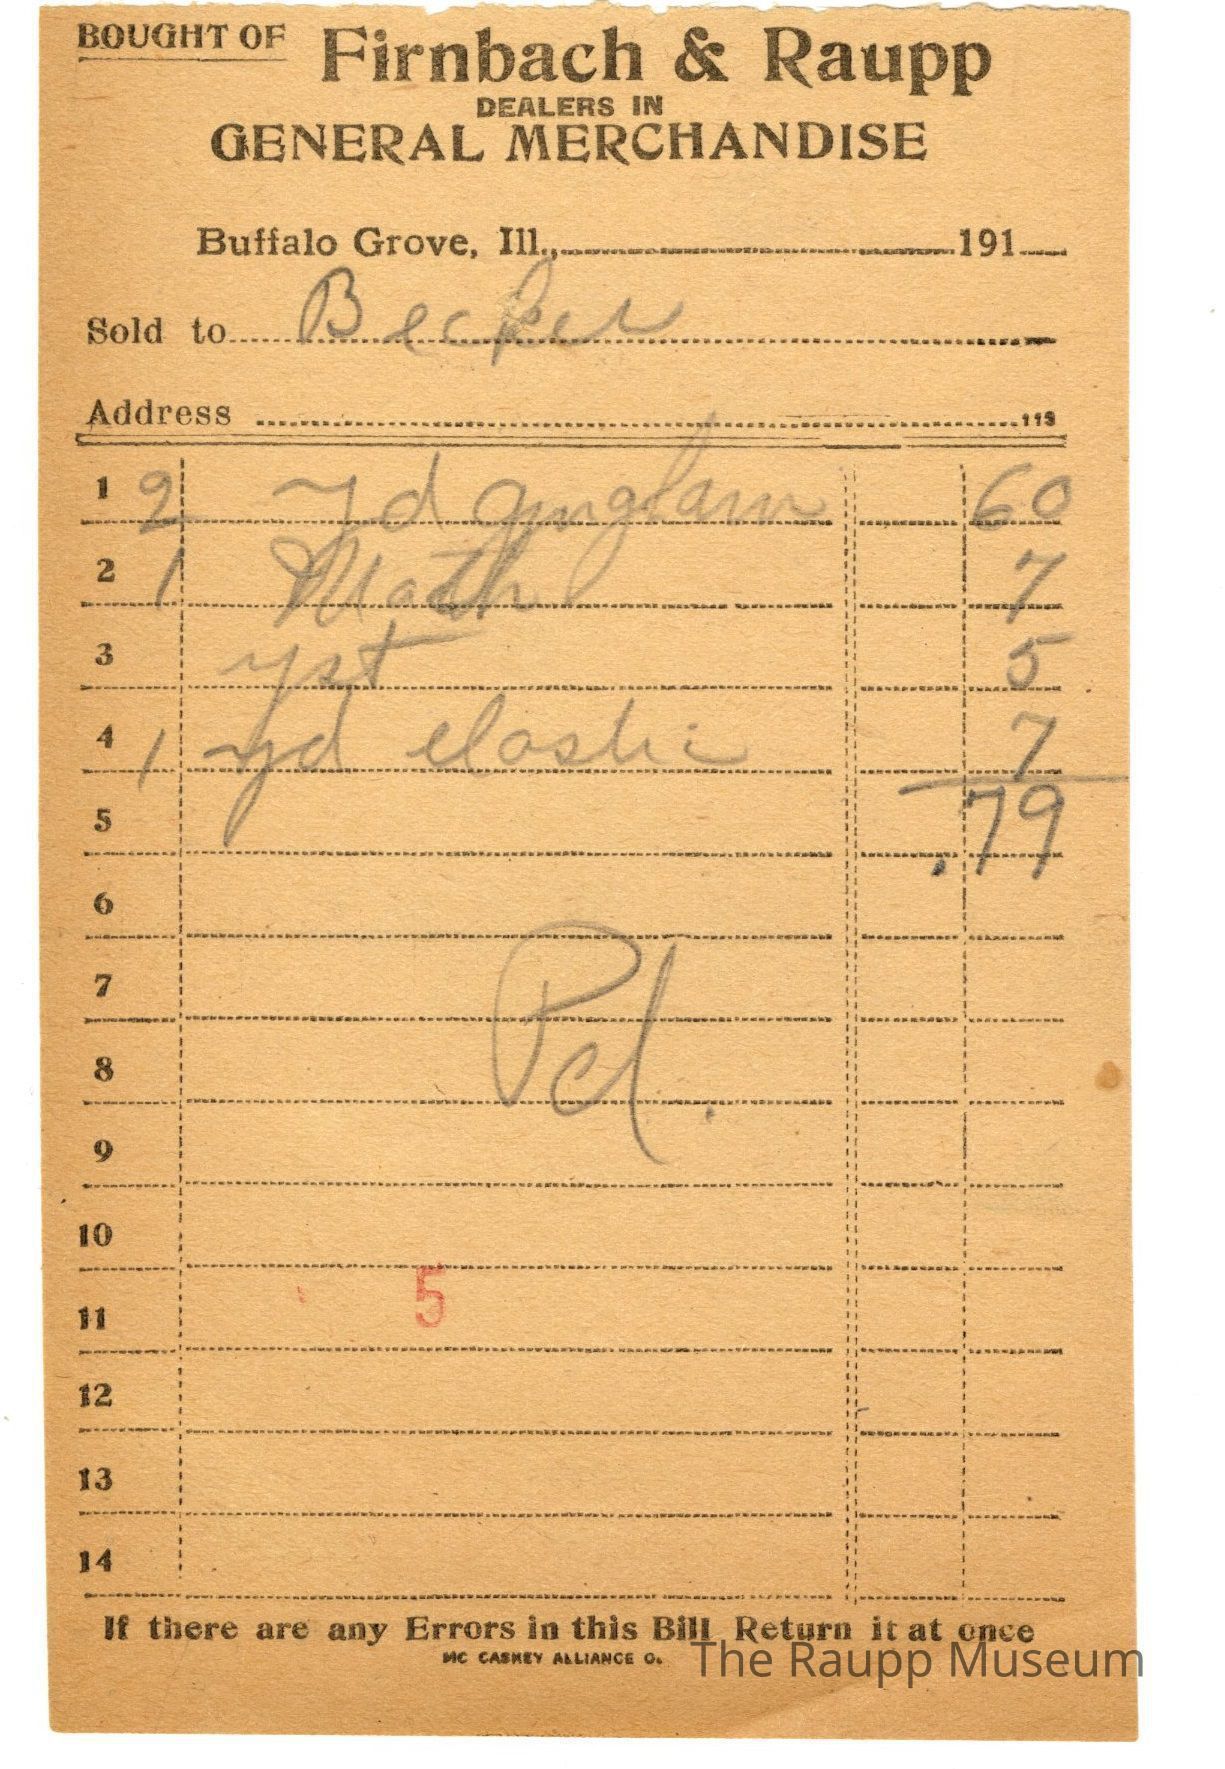 BOUGHT OF Firnbach & Raupp
DEALERS IN
GENERAL MERCHANDISE
Buffalo Grove, Ill., 191
Sold to Becker
Address 113
1 2 yd gingham 60
2 1 Math 7
3 yst 5
4 1 yd elastic 7
5 .79
6
7
Pd.
8
9
10
11 5
12
13
14
If there are any Errors in this Bill Return it at once
MC CASKEY ALLIANCE O.
The Raupp Museum